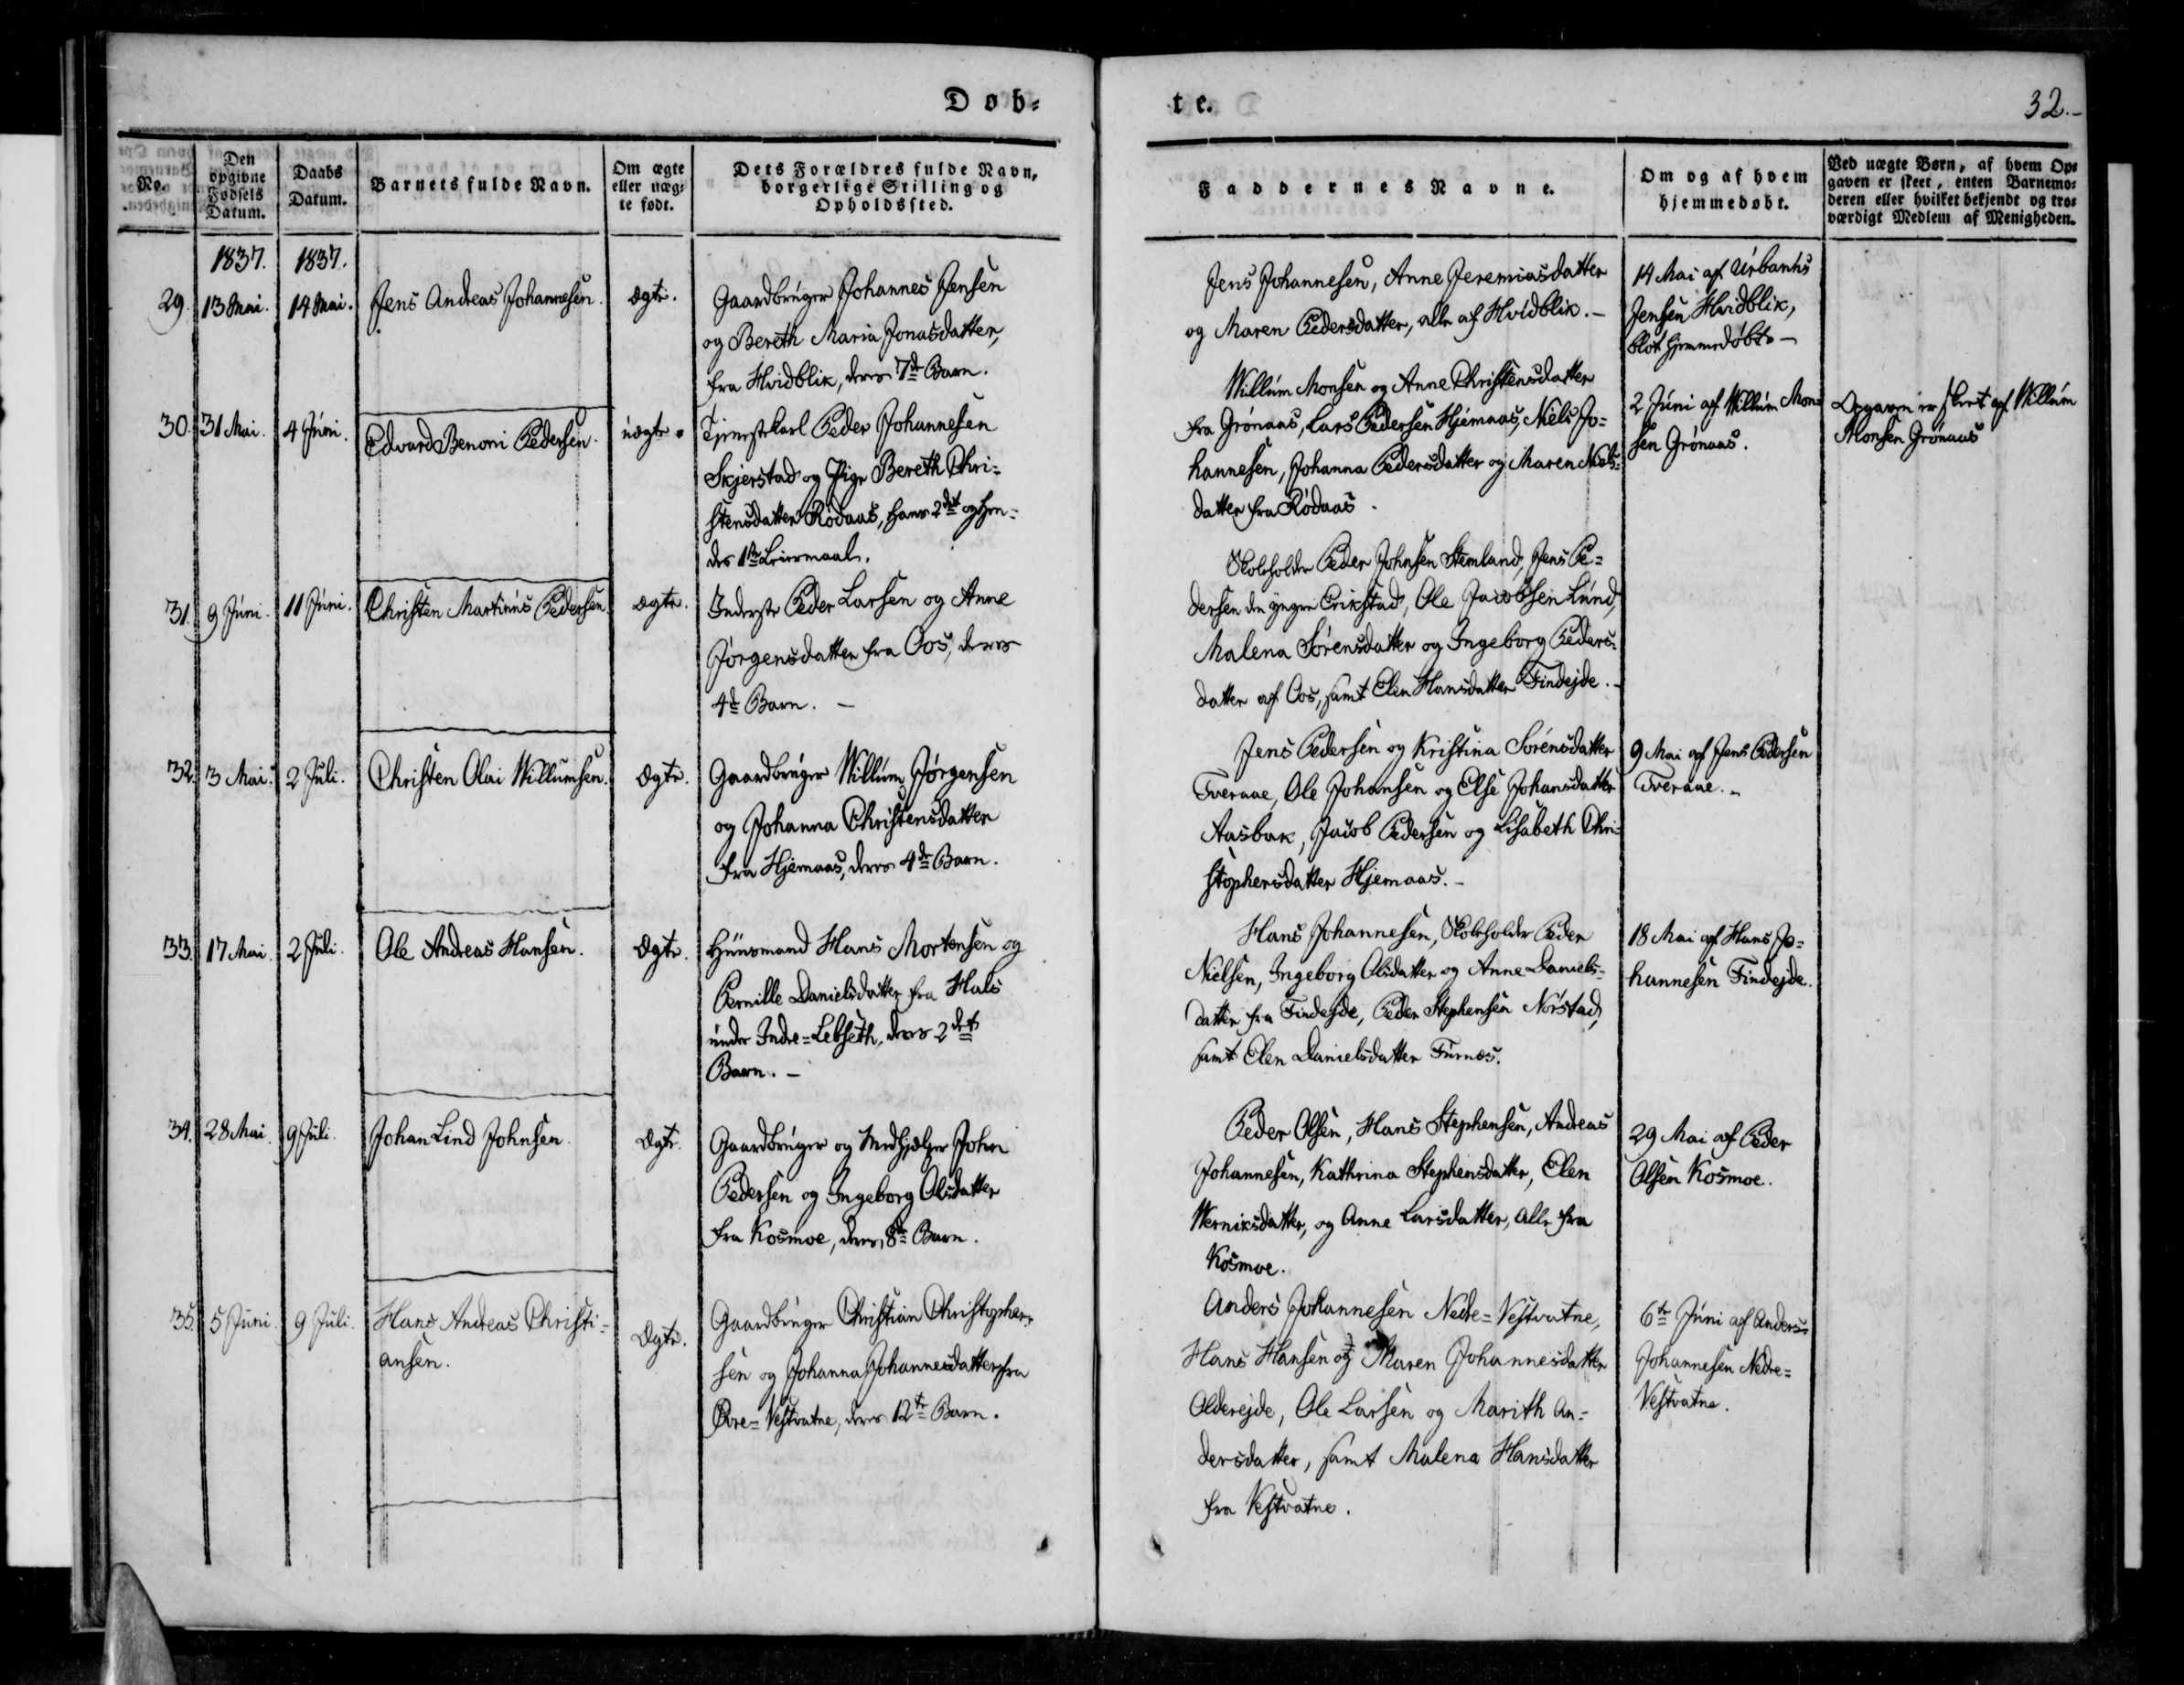 Døb-
te.
32.-
No.
Den
opgivne
Fødsels
Datum.
Daabs
Datum.
Barnets fulde Navn.
Om ægte
eller uæg-
te født.
Dets Forældres fulde Navn,
borgerlige Stilling og
Opholdssted.
Faddernes Navne.
Om og af hvem
hjemmedøbt.
Ved uægte Børn, af hvem Op-
gaven er skeet, enten Barnemo-
deren eller hvilket bekjendt og tro-
værdigt Medlem af Menigheden.
1837.
1837.
29.
13 Mai.
14 Mai.
Jens Andreas Johannesen.
Ægte.
Gaardbruger Johannes Jensen
og Bereth Maria Jonasdatter,
fra Hvidblik, deres 7de Barn.
Jens Johannesen, Anne Jeremiasdatter
og Maren Pedersdatter, alle af Hvidblik.-
14 Mai af Urbanus
Jensen Hvidblik,
blot hjemmedøbt.-
30.
31 Mai.
4 Juni.
Edvard Benoni Pedersen.
uægte.
Tjenestekarl Peder Johannesen
Skjerstad og Pige Bereth Chri-
stensdatter Rødaas, hans 2det og hen-
des 1ste Leiermaal.
Willum Monsen og Anne Christensdatter
fra Grønaas, Lars Pedersen Hjemaas, Niels Jo-
hannesen, Johanna Pedersdatter og Maren Niels-
datter fra Rødaas.
2 Juni af Willum Mon-
sen Grønaas.
Opgaven er skeet af Willum
Monsen Grønaas
31.
9 Juni.
11 Juni.
Christen Martinus Pedersen
Ægte.
Inderste Peder Larsen og Anne
Jørgensdatter fra Oos, deres
4de Barn.-
Skoleholder Peder Johnsen Stemland, Jens Pe-
dersen den yngre Erikstad, Ole Jacobsen Lund,
Malena Sørensdatter og Ingeborg Peders-
datter af Oos, samt Elen Hansdatter Findejde.-
32.
3 Mai.
2 Juli.
Christen Olai Willumsen.
Ægte.
Gaardbruger Willum Jørgensen
og Johanna Christensdatter
fra Hjemaas, deres 4de Barn.
Jens Pedersen og Kristina Sørensdatter
Tveraae, Ole Johansen og Else Johansdatter
Aasbak, Jacob Pedersen og Lisabeth Chri-
stophersdatter Hjemaas.-
9 Mai af Jens Pedersen
Tveraae.-
33.
17 Mai.
2 Juli.
Ole Andreas Hansen.
Ægte.
Huusmand Hans Mortensen og
Pernille Danielsdatter fra Hals
under Indre-Lebseth, deres 2det
Barn.-
Hans Johannesen, Skoleholder Peder
Nielsen, Ingeborg Olsdatter og Anne Daniels-
datter fra Findejde, Peder Stephensen Nørstad,
samt Elen Danielsdatter Furnes.
18 Mai af Hans Jo-
hannesen Findejde.
34.
28 Mai.
9 Juli.
Johan Lind Johnsen.
Ægte.
Gaardbruger og Medhjælper John
Pedersen og Ingeborg Olsdatter
fra Kosmoe, deres 8de Barn.
Peder Olsen, Hans Stephensen, Andreas
Johannesen, Kathrina Stephensdatter, Elen
Werniksdatter, og Anne Larsdatter, alle fra
Kosmoe.
29 Mai af Peder
Olsen Kosmoe.
35.
5 Juni.
9 Juli.
Hans Andreas Christi-
ansen.
Ægte.
Gaardbruger Christian Christopher-
sen og Johanna Johannesdatter fra
Øvre-Vestvatne, deres 12te Barn.
Anders Johannesen Nedre-Vestvatne,
Hans Hansen og Maren Johannesdatter
Alderejde, Ole Larsen og Marith An-
dersdatter, samt Malena Hansdatter
fra Vestvatne.
6te Juni af Anders
Johannesen Nedre-
Vestvatne.